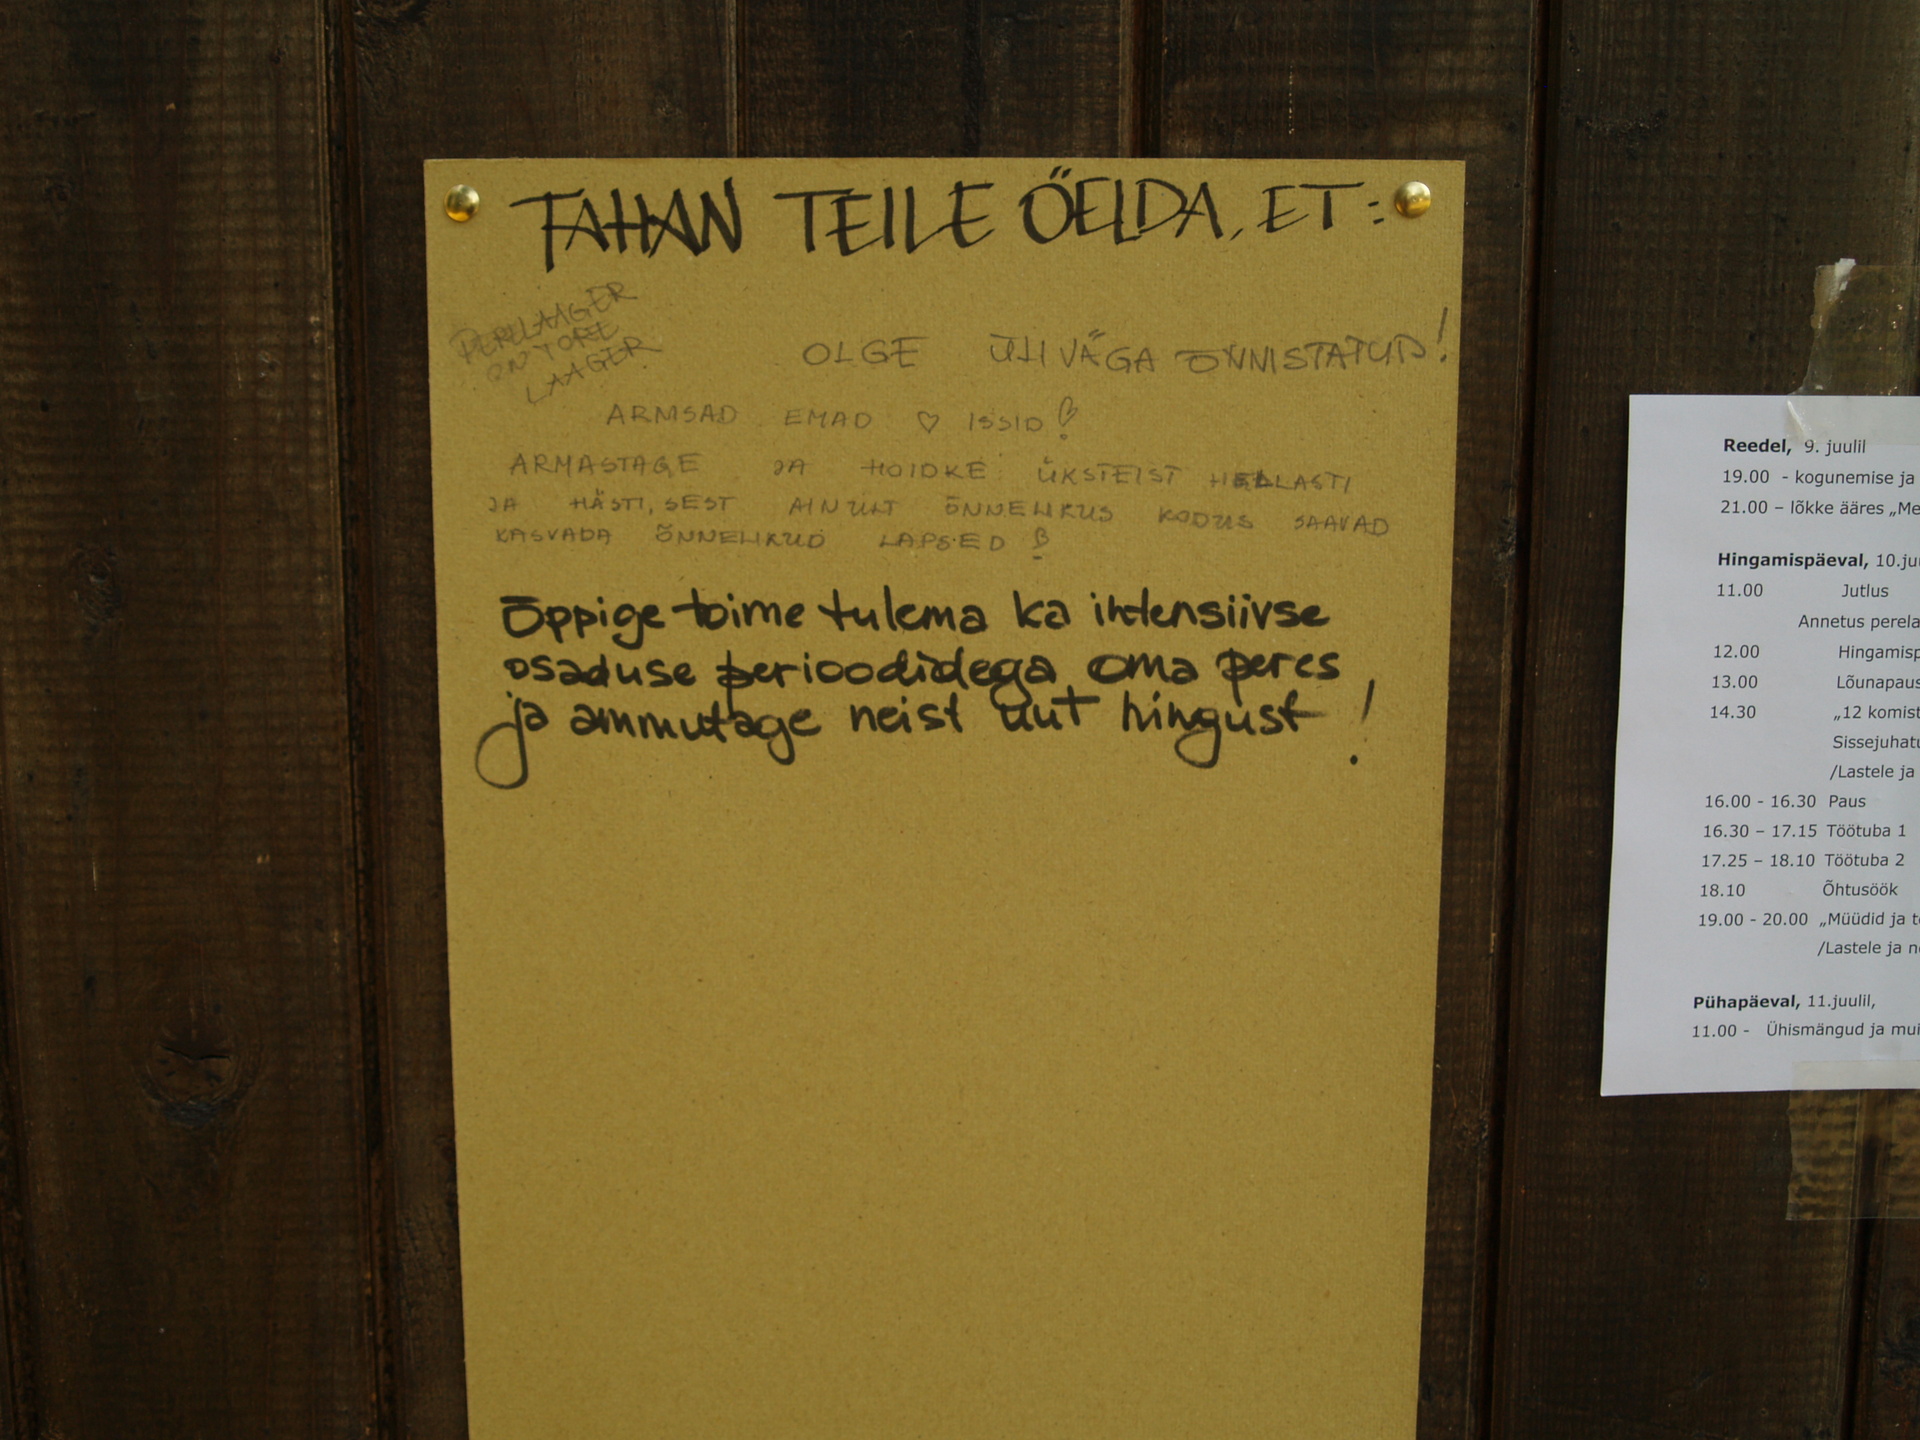 TAHAN TEILE ÖELDA, ET:
PERELAAGER
ON TORE
LAAGER
OLGE ÜLIVÄGA ÕNNISTATUD!
ARMSAD EMAD ♡ ISSID!
ARMASTAGE JA HOIDKE ÜKSTEIST HELLASTI
JA HÄSTI, SEST AINULT ÕNNELIKUS KODUS SAAVAD
KASVADA ÕNNELIKUD LAPSED!
Õppige toime tulema ka intensiivse
osaduse perioodidega oma peres
ja ammutage neist uut hingust!
Reedel, 9. juulil
19.00 - kogunemise ja
21.00 – lõkke ääres „Me
Hingamispäeval, 10.juu
11.00 Jutlus
Annetus perela
12.00 Hingamisp
13.00 Lõunapaus
14.30 „12 komist
Sissejuhatu
/Lastele ja
16.00 - 16.30 Paus
16.30 – 17.15 Töötuba 1
17.25 – 18.10 Töötuba 2
18.10 Õhtusöök
19.00 - 20.00 „Müüdid ja t
/Lastele ja n
Pühapäeval, 11.juulil,
11.00 - Ühismängud ja mui